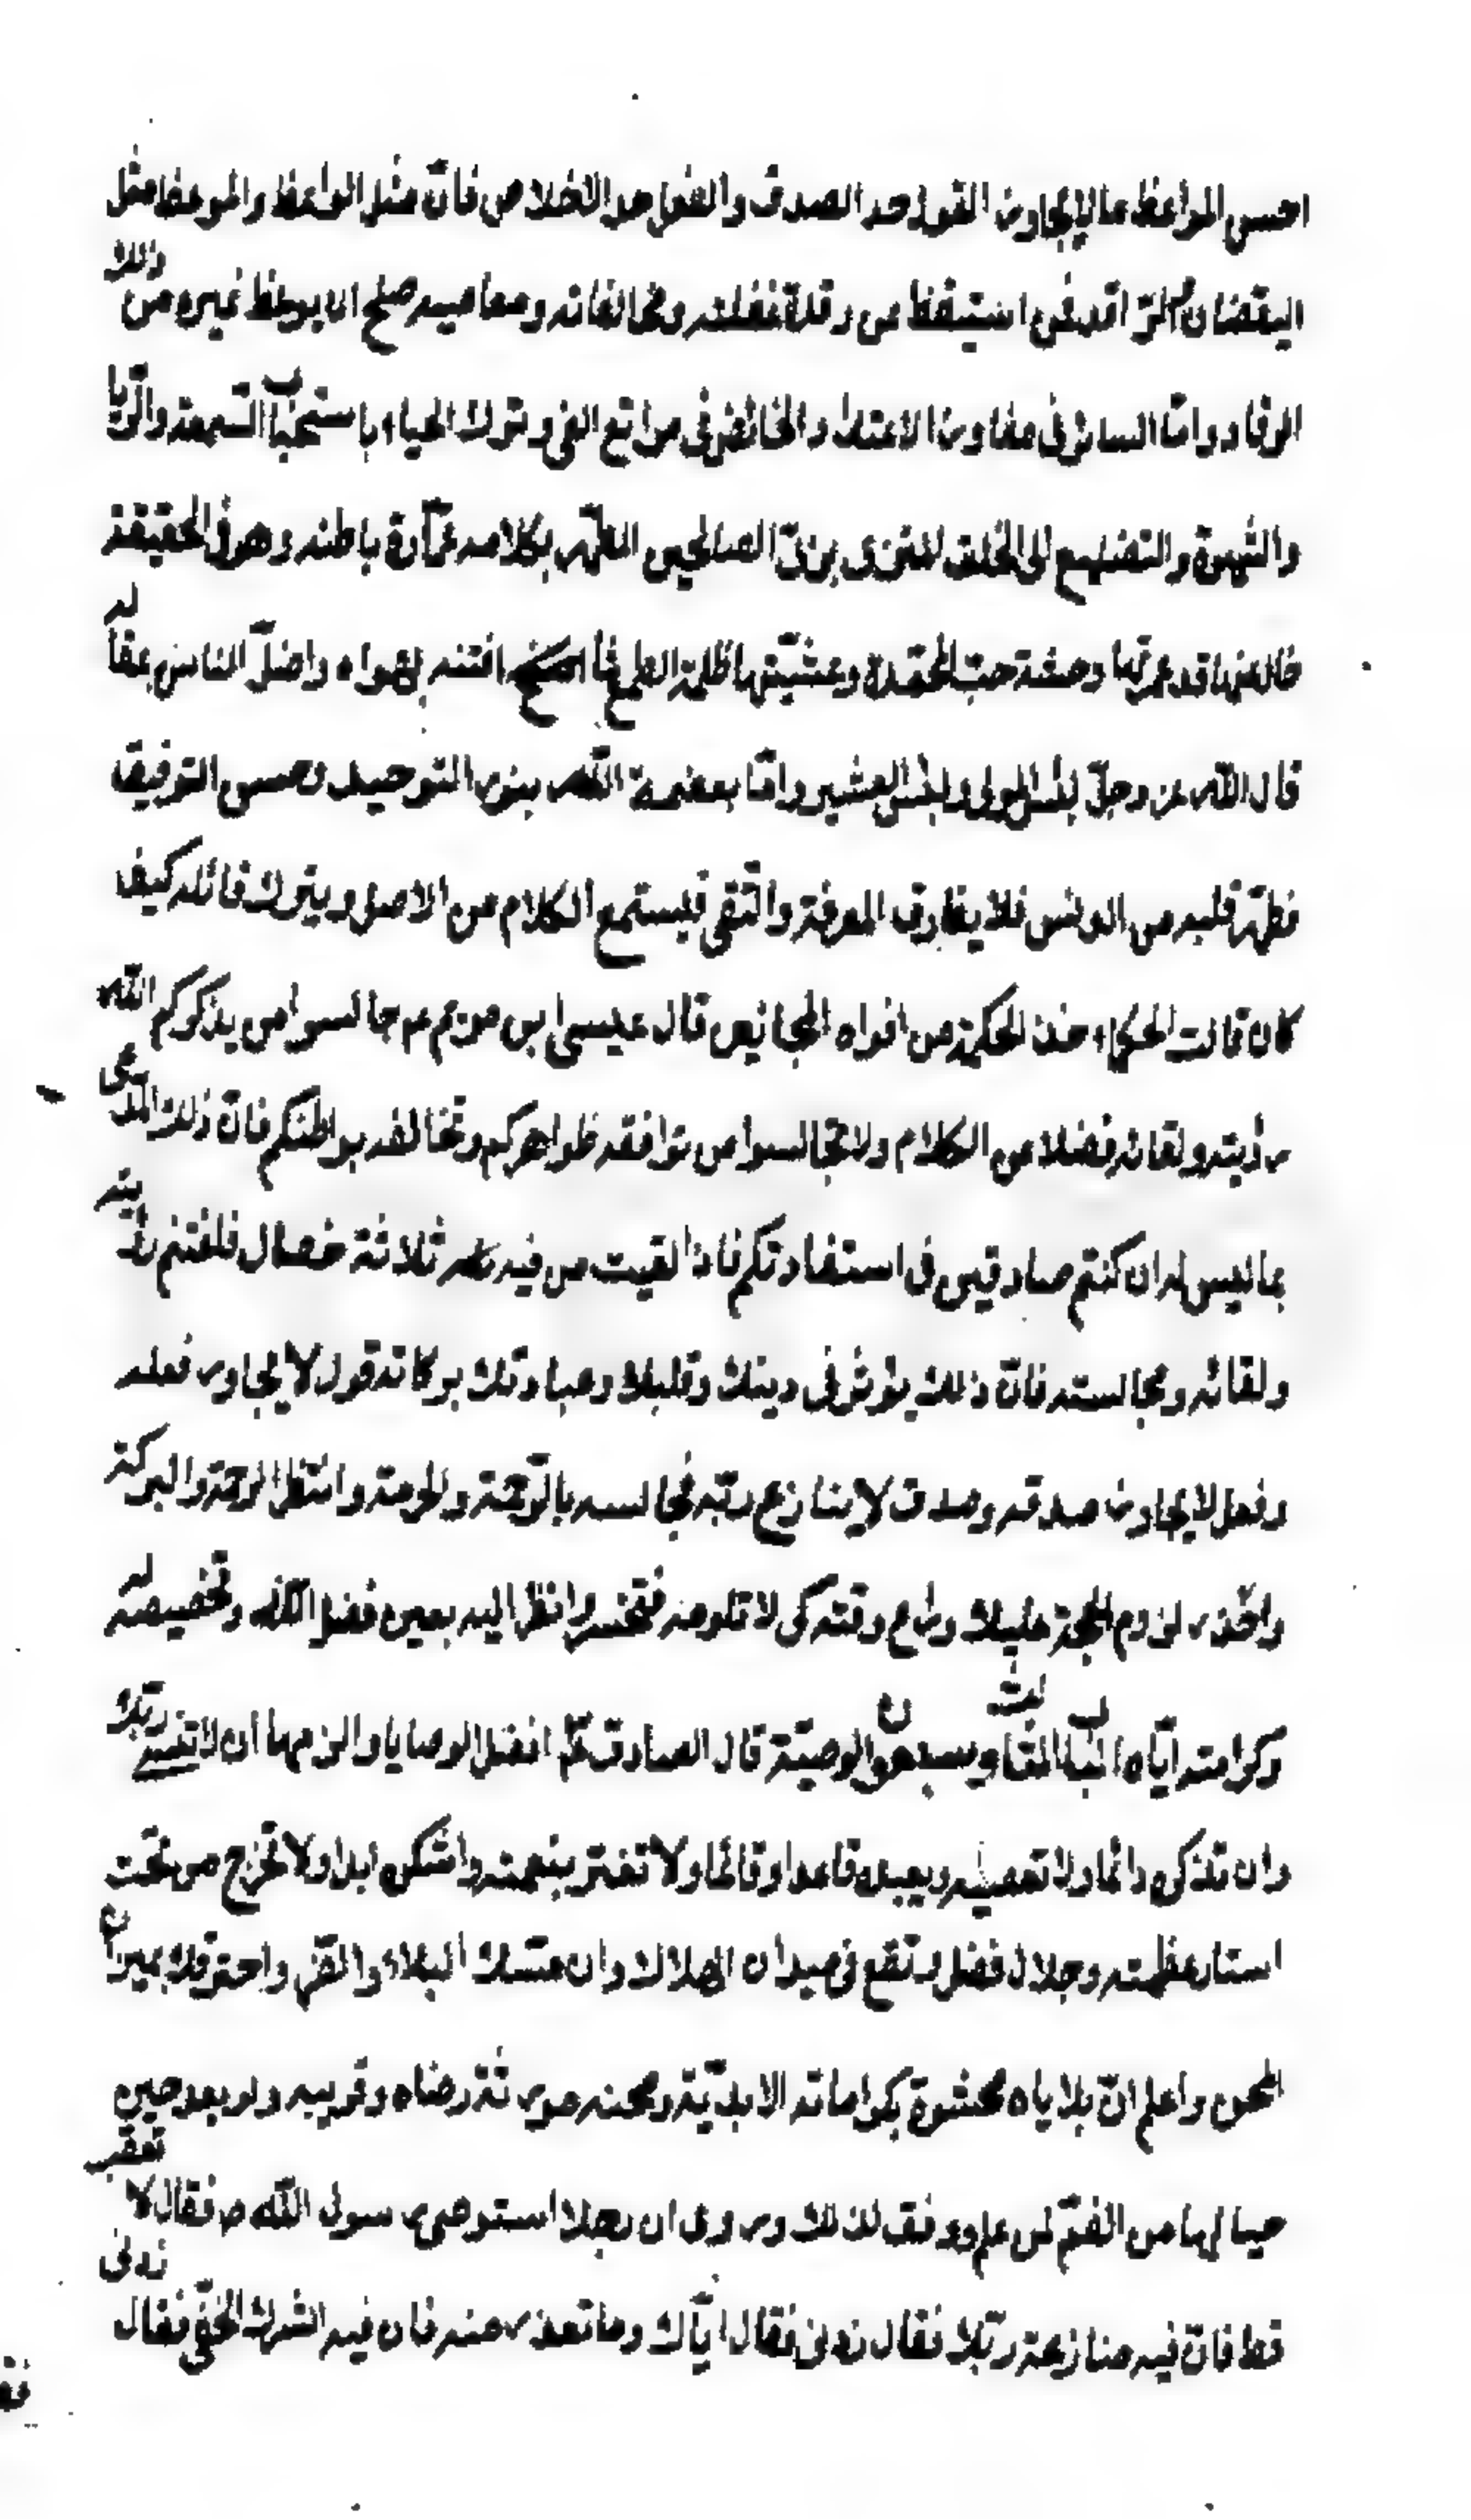 احسن المواعظ ما لا يجاوز القول حد الصدق والفعل حد الاخلاص فان مثل الواعظ والموعظ مثل
اليقضان والراقد فمن استيقظ من رقدة غفلته ومخالفاته ومعاصيه صلح ان يوعظ غيره من ذلك
الرقاد واما السائر في مفاوز الاعتداء والخائض في مراتع الغي وترك الحياء باستحباب السمعة والريا
والشهرة والتصنع الى الخلق المتزى بزى الصالحين المظهر بكلامه عمارة باطنه وهو فى الحقيقة
خال عنها قد غمرتها وحشة حب المحمدة وغشيتها ظلمة الطمع فما افتنه بهواه واضل الناس بمقاله
قال الله عز وجل لبئس المولى ولبئس العشير واما من عصمه الله بنور التوحيد وحسن التوفيق
فطهر قلبه من الدنس فلا يفارق المعرفة والتقى فيستمع الكلام من الاصل ويترك قائله كيف
كان قالت الحكماء خذ الحكمة من افواه المجانين قال عيسى ابن مريم ع م جالسوا من يذكركم الله
رؤيته ولقائه فضلا من الكلام ولا تجالسوا من توافقه ظواهركم وتخالفه بواطنكم فان ذلك المدعى
بما ليس له ان كنتم صادقين فى استفادتكم فاذا لقيت من فيه ثلاثة خصال فاغتنم رؤيته
ولقائه ومجالسته فان ذلك يؤثر فى دينك وقلبك وعبادتك بركاته قول لا يجاوز فعله
وفعل لا يجاوز صدقه وصدق لا ينازع ربه فجالسه بالحرمة وانتظر الرحمة والبركة
واحذر لزوم الحجة عليك وراع وقته كى لا تلومه فتخسر وانظر اليه بعين فضل الله وتخصيصه له
وكرامته اياه الباب الثالث وسبعون الوصية قال الصادق ع م افضل الوصايا والزمها ان لا تنسى ربك
وان تذكره دائما ولا تعصيه وتعبده قاعدا وقائما ولا تغتر بنعمته واشكره ابدا ولا تخرج من تحت
استار عظمته وجلاله فتضل وتقع فى ميدان الهلاك وان مسك البلاء والضر واحرقك نيران
المحن واعلم ان بلاياه محشوة بكراماته الابدية ومحنه مورثة رضاه وقربه ولو بعد حين
فيا لها من انعم لمن علم ووفق لذلك وروى ان رجلا استوصى رسول الله ص فقال لا تغضب
قط فان فيه منازعة ربك فقال زدنى فقال اياك وما تعتذر منه فان فيه الشرك الخفى فقال زدنى